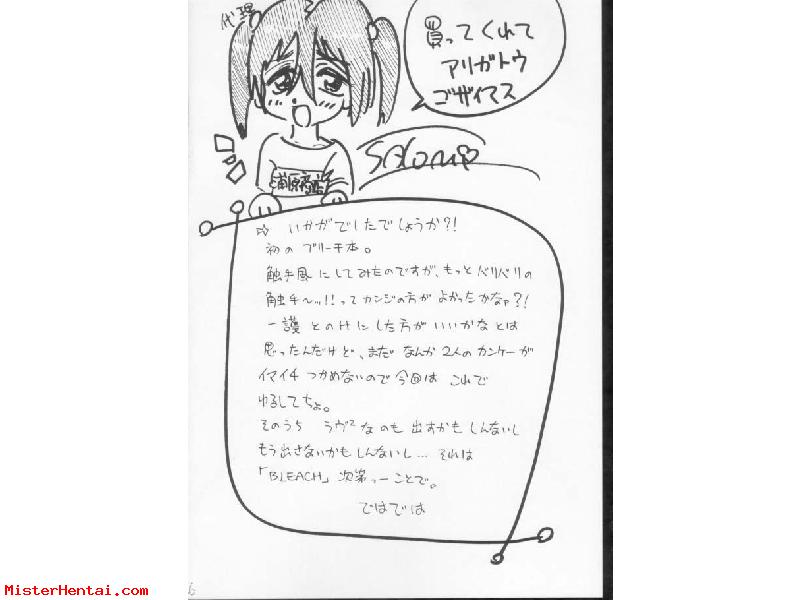 代理
買ってくれて
アリガトウ
ゴザイマス
Satomi♡
浦原商店
☆ いかがでしたでしょうか?!
初の ブリーチ本。
触手風にしてみたのですが、もっとバリバリの
触手〜ッ!!ってカンジの方が よかったかなァ?!
一護とのHにした方がいいかなとは
思ったんだけど、まだ なんか 2人のカンケーが
イマイチ つかめないので 今回は これで
ゆるしてちょ。
そのうち ラヴ²なのも 出すかもしんないし
もう出さないかもしんないし… それは
「BLEACH」次第っつーことで。
ではでは
MisterHentai.com